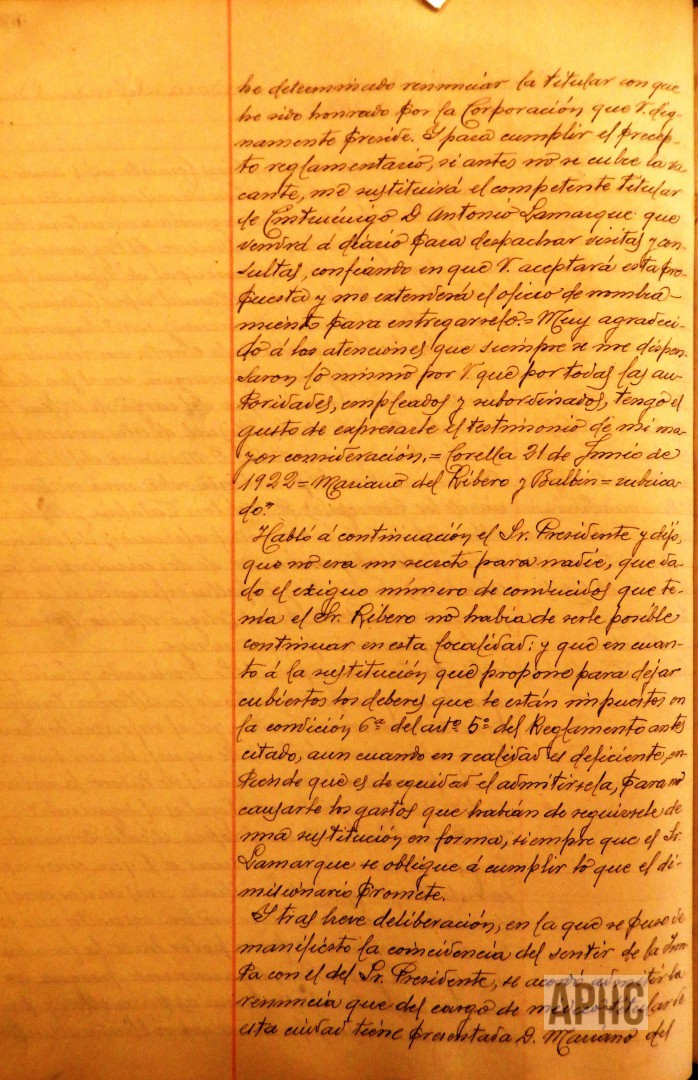 he determinado renunciar la titular con que
he sido honrado por la Corporación que V. dig-
namente preside. Y para cumplir el precep-
to reglamentario, si antes no se cubre la va
cante, me sustituirá el competente titular
de Cintruénigo D. Antonio Lamarque que
vendrá á diario para despachar visitas y con
sultas, confiando en que V. aceptará esta pro
puesta y me extenderá el oficio de nombra-
miento para entregarselo.= Muy agradeci-
do á las atenciones que siempre se me dispen-
saron lo mismo por V. que por todas las au-
toridades, empleados y subordinados, tengo el
gusto de expresarle el testimonio de mi ma-
yor consideración,= Corella 21 de Junio de
1922= Mariano del Ribero y Balbin= rubrica-
do."
Habló á continuación el Sr. Presidente y dijo,
que no era un secreto para nadie, que da-
do el exiguo número de conducidos que te-
nía el Sr. Ribero no había de serle posible
continuar en esta localidad: y que en cuan-
to á la sustitución que propone para dejar
cubiertos los deberes que le están impuestos en
la condición 6ª del artº 5º del Reglamento antes
citado, aun cuando en realidad es deficiente, en-
tiende que es de equidad el admitirsela, para no
causarle los gastos que habían de requirsele de
una sustitución en forma, siempre que el Sr.
Lamarque se obligue á cumplir lo que el di-
misionario promete.
Y tras breve deliberación, en la que se puso de
manifiesto la coincidencia del sentir de la Jun-
ta con el del Sr. Presidente, se acordó admitir la
renuncia que del cargo de médico titular de
esta ciudad tiene presentada D. Mariano del
APHC